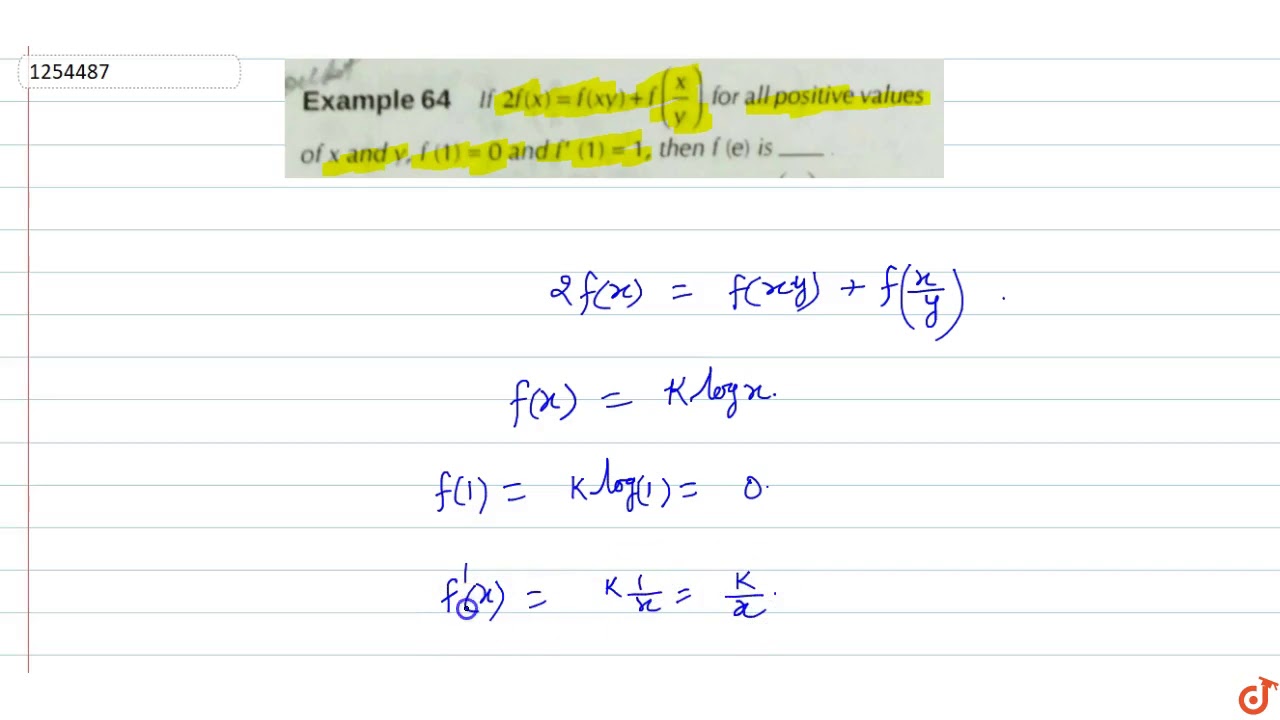 1254487
Example 64 If 2f(x) = f(xy) + f(x/y) for all positive values
of x and y, f(1) = 0 and f' (1) = 1, then f (e) is ____.
2f(x) = f(xy) + f(x/y).
f(x) = K log x.
f(1) = K log(1) = 0.
f'(x) = K 1/x = K/x.